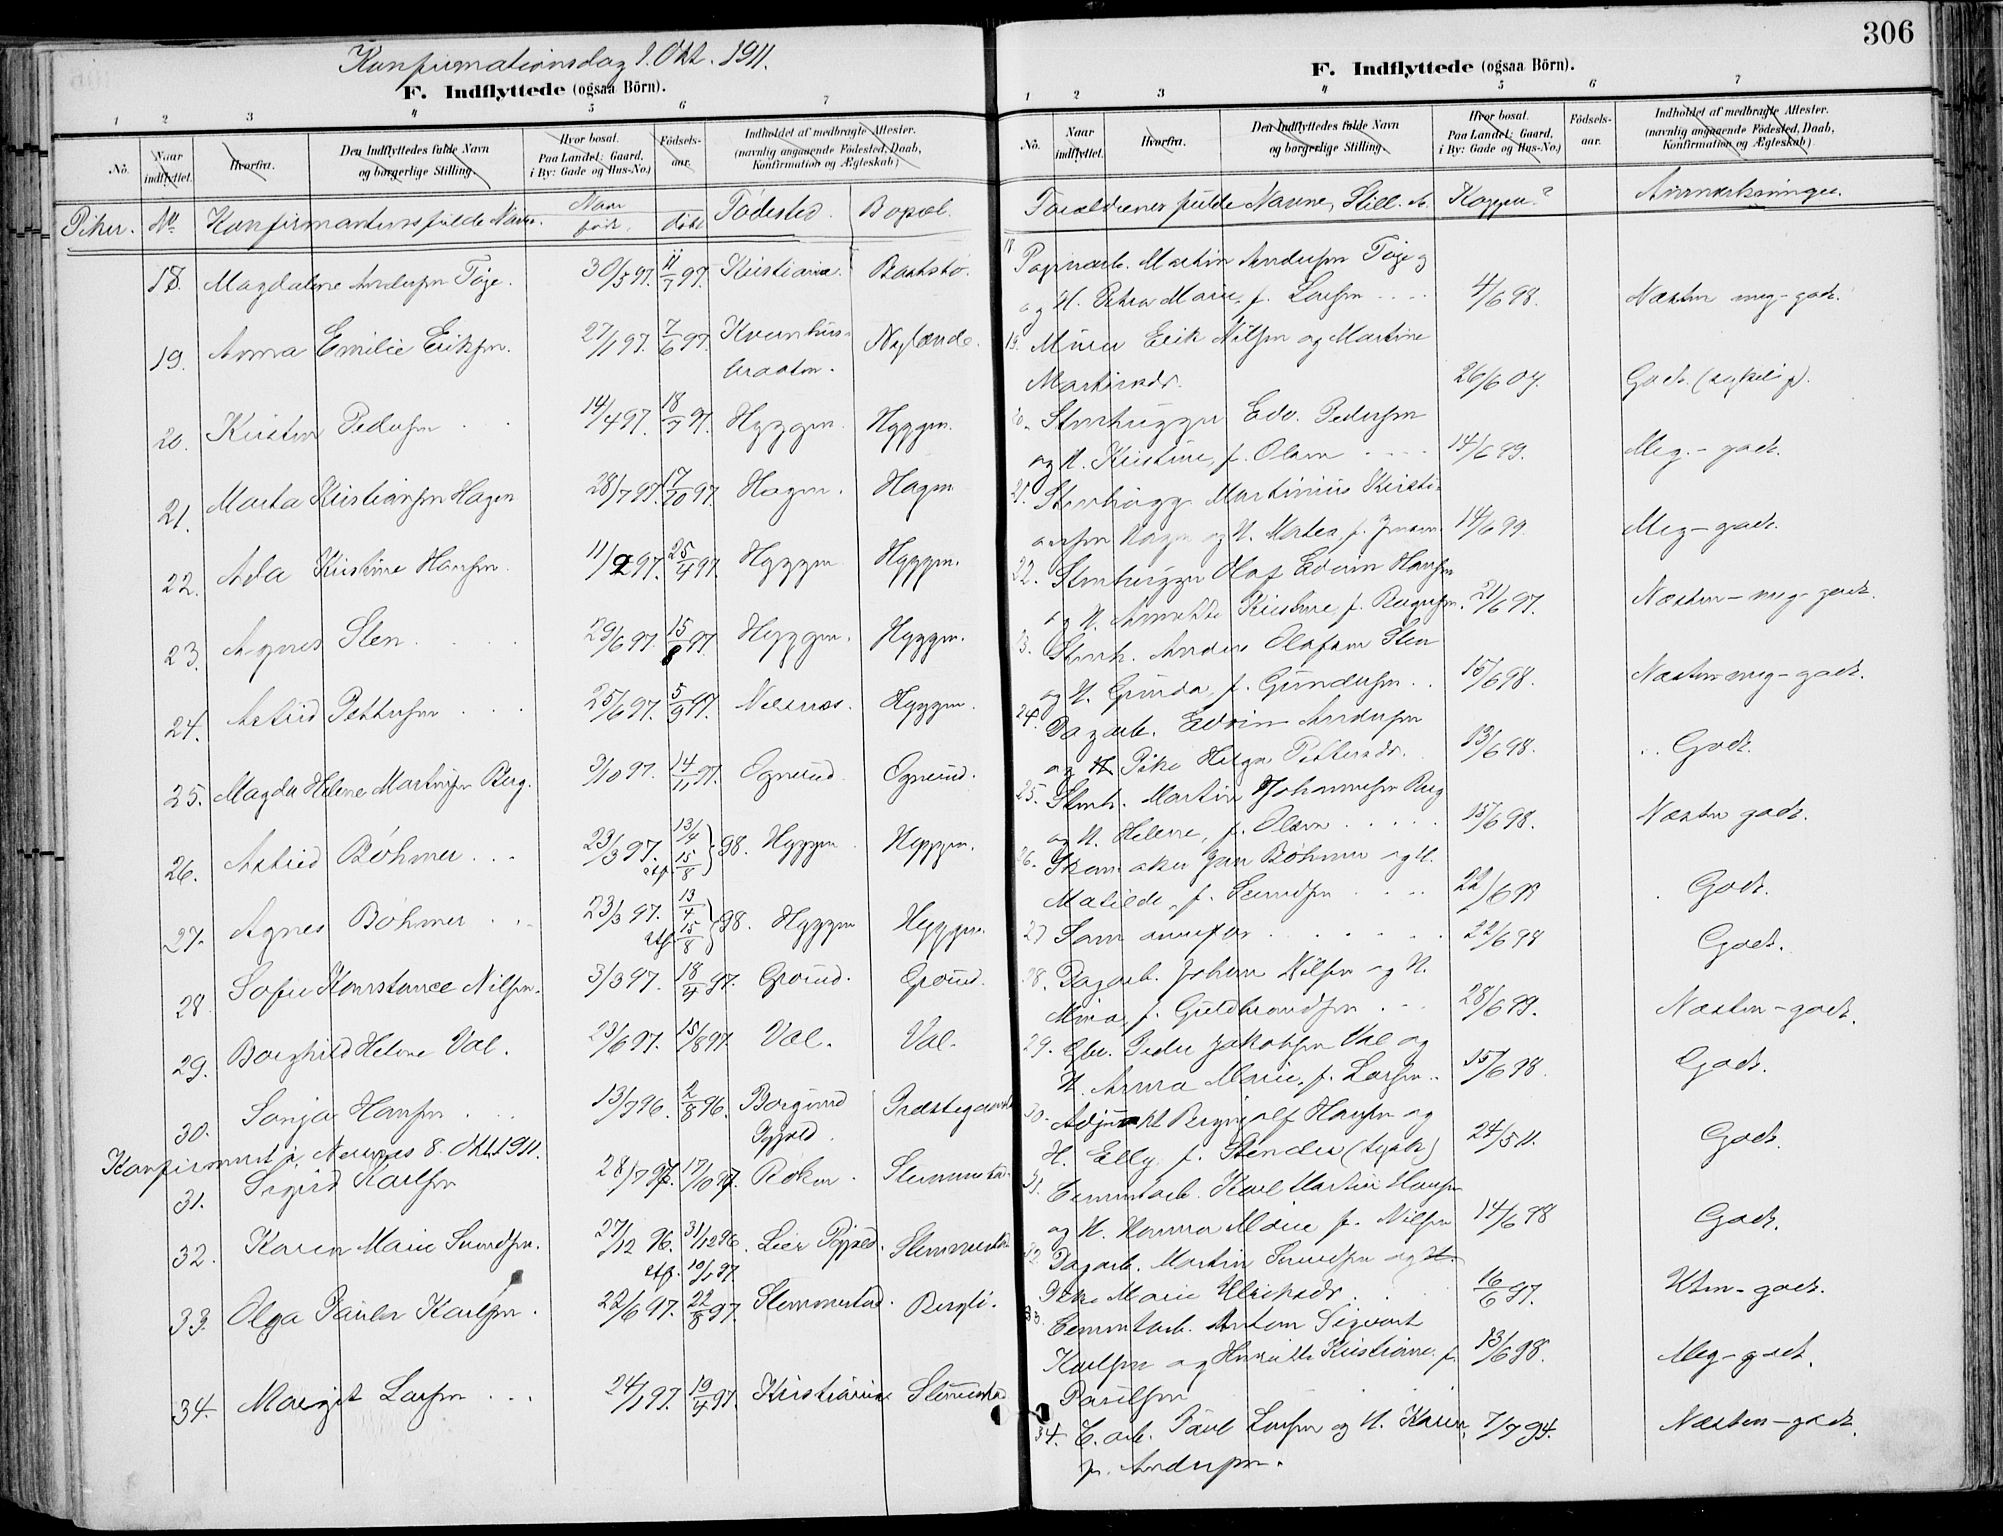 306
Konfirmationsdag 1. Okt. 1911.
F. Indflyttede (ogsaa Börn).
1 2 3 4 5 6 7
No.
Naar indflyttet.
Hvorfra.
Den Indflyttedes fulde Navn og borgerlige Stilling.
Hvor bosat. Paa Landet: Gaard, i By: Gade og Hus-No.)
Födsels-aar.
Indholdet af medbragte Attester. (navnlig angaaende Födested, Daab, Konfirmation og Ægteskab)
Piker. No. Konfirmantens fulde Navn. Naar født. døbt Fødested. Bopæl.
18. Magdalene Andersen Føje. 30/5 97. 11/7 97. Kristiania Baatstø.
19. Anna Emilie Eriksen. 27/1 97. 7/6 97. Kvernhus-
braaten. Nylænde.
20. Kirsten Pedersen . . 14/4 97. 18/7 97. Hyggen. Hyggen.
21. Marta Kristiansen Hagen 28/7 97. 17/10 97. Hagen. Hagen
22. Ada Kristine Hansen. 11/2 97. 25/4 97. Hyggen Hyggen.
23. Agnes Sten . . . 29/6 97. 15/8 97. Hyggen. Hyggen.
24. Astrid Pettersen . . . 25/6 97. 5/9 97. Nilsnæs. Hyggen.
25. Magda Helene Martinsen Berg. 3/10 97. 14/11 97. Ognerud. Ognerud.
26. Astrid Bøhmer . . . 23/3 97. 13/4 stf. 15/8 } 98. Hyggen. Hyggen.
27. Agnes Bøhmer . . . 23/3 97. 13/4 stf. 15/8 } 98. Hyggen Hyggen.
28. Sofie Konstance Nilsen. 3/3 97. 18/4 97. Grorud. Grorud.
29. Borghild Helene Val. 23/6 97. 15/8 97. Val. Val.
30. Sonja Hansen . . . 13/7 96. 2/8 96. Borgund
Konfirmert i Nærsnes 8. Okt. 1911.
31. Sigrid Karlsen 28/7 97. 17/10 97. Røken.
32. Karen Marie Svendsen. 27/12 96. 31/12 96. stf. 10/1 97. Lier Slemmestad
33. Olga Paula Karlsen . 22/6 97. 22/8 97. Slemmestad.
34. Margit Larsen . . . 24/1 97. 19/4 97. Kristiania Slemmestad
F. Indflyttede (ogsaa Börn).
1 2 3 4 5 6 7
No.
Naar indflyttet.
Hvorfra.
Den Indflyttedes fulde Navn og borgerlige Stilling.
Hvor bosat. Paa Landet: Gaard, i By: Gade og Hus-No.)
Födsels-aar.
Indholdet af medbragte Attester. (navnlig angaaende Födested, Daab, Konfirmation og Ægteskab)
Forældrenes fulde Navne, Still. Kopperi? Anmærkninger.
18 Papirarb. Martin Andersen Føje
og H. Petra Marie, f. Larsen . . . 4/6 98. Næsten meg-godt.
19. Murer Erik Nilsen og Martine
Martinsdr. 26/6 07. Godt.
20. Stenhugger Edv. Pedersen
og H. Kristine, f. Olsen . . . 14/6 99. Meg.-godt.
21. Stenhugg. Martinius Kristi-
ansen Hagen og H. Martea, f. 14/6 99. Meg-godt.
22. Stenhugger Olaf Edvin Hansen
og H. Annette Kristine, f. Bergersen. 21/6 97. Næsten-meg-godt.
23. Stenh. Anders Olafsen Sten
og H. Gunda, f. Gundersen . . 15/6 98. Næsten meg-godt.
24. Dagarb. Edvin Andersen
og Pike Helga Pettersdr. 13/6 98. Godt.
25. Stenh. Martin Johannesen Berg
og H. Helene, f. Olsen . . . . . 15/6 98. Næsten godt.
26. Skomaker Jan Bøhmer og H.
Matilde, f. Svendsen . . . . 22/6 99 Godt.
27 Som ovenfor . . . . . . 22/6 99 Godt.
28. Dagarb. Johan Nilsen og H.
Mina, f. Guldbrandsen . . 28/6 99. Næsten-godt.
29. Gbr. Peder Jakobsen Val og
H. Anna Marie, f. Larsen . . 15/6 98. Godt.
30. Adjunkt Hansen og
H. Elly, f. Stender (tysk) 24/5 11. Godt.
31. Cementarb. Karl Martin Hansen
og H. Hanna Marie f. Nilsen 14/6 98 Godt.
32 Dagarb. Martin Svendsen og
Pike Marie Ulriksdr. . . 16/6 97. Uten-godt.
33. Cementarb. Anton Sigvart
Karlsen og Henriette Kristiane f. 13/6 98. Meg-godt.
Paulsen
34. C. arb. Paul Larsen og H. Karen, 7/7 94. Næsten-godt.
f. Andersen.